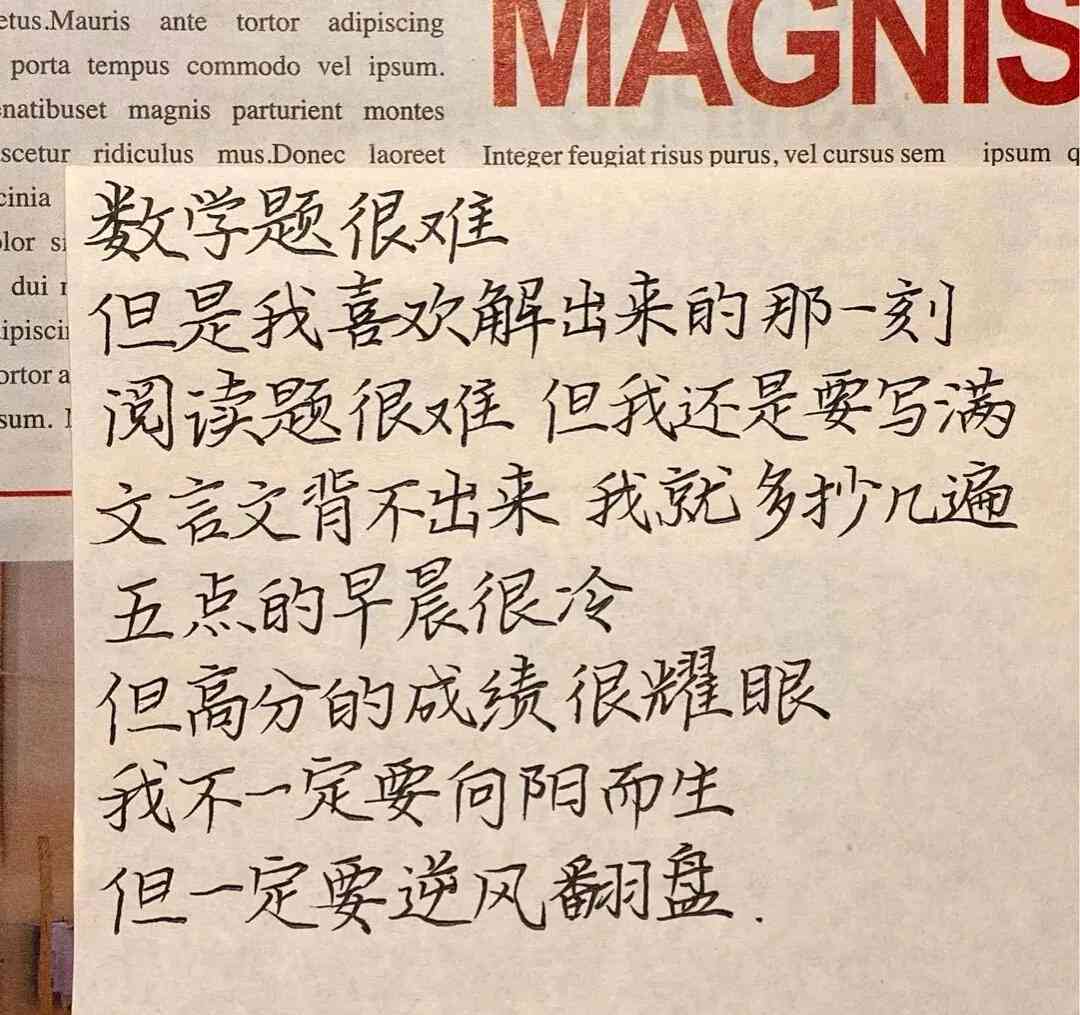 etus.Mauris ante tortor adipiscing
porta tempus commodo vel ipsum.
natibuset magnis parturient montes
scetur ridiculus mus.Donec laoreet
MAGNIS
Integer feugiat risus purus, vel cursus sem ipsum q
cinia
olor si
dui
ipiscin
ortor a
sum.
数学题很难
但是我喜欢解出来的那一刻
阅读题很难 但我还是要写满
文言文背不出来 我就多抄几遍
五点的早晨很冷
但高分的成绩很耀眼
我不一定要向阳而生
但一定要逆风翻盘.